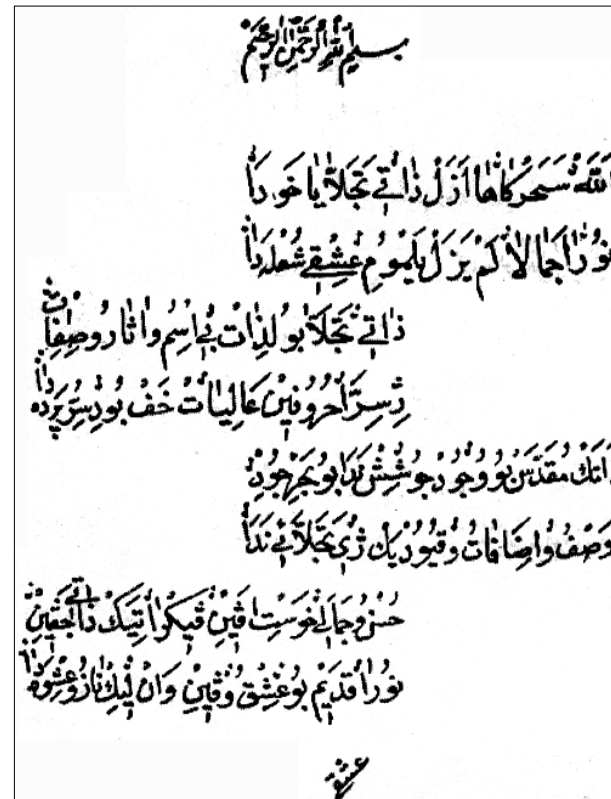 بسم الله الرحمن الرحيم
الله سحركاها ازل ذاتى تجلايا خودا
نورا جمالا لم يزل يلموم عشقى شعله دا
ذاتى تجلا بو لذات بى اسم واثار وصفات
د سرا حروفين عاليات خف بو د سر پرده دا
ذاتك مقدس بو وجود جوشش ندا بو بحر جود
وصف واضافات وقيود يك ژى تجلا نى ندا
حسن وجمالى خوست اڤين ڤيكرا تيك ذاتى جڤين
نورا قديم بو عشق وڤين وان ليك نازو عشوه دا
عشقى